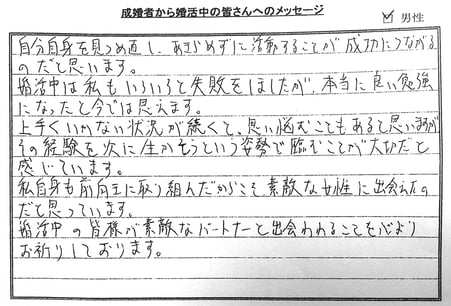 成婚者から婚活中の皆さんへのメッセージ
男性
自分自身を見つめ直し、あきらめずに活動することが成功につながる
のだと思います。
婚活中は私もいろいろと失敗をしましたが、本当に良い勉強
になったと今では思えます。
上手くいかない状況が続くと、思い悩むこともあると思いますが
その経験を次に生かそうという姿勢で臨むことが大切だと
感じています。
私自身も前向きに取り組んだからこそ素敵な女性に出会えたの
だと思っています。
婚活中の皆様が素敵なパートナーと出会われることを心より
お祈りしております。